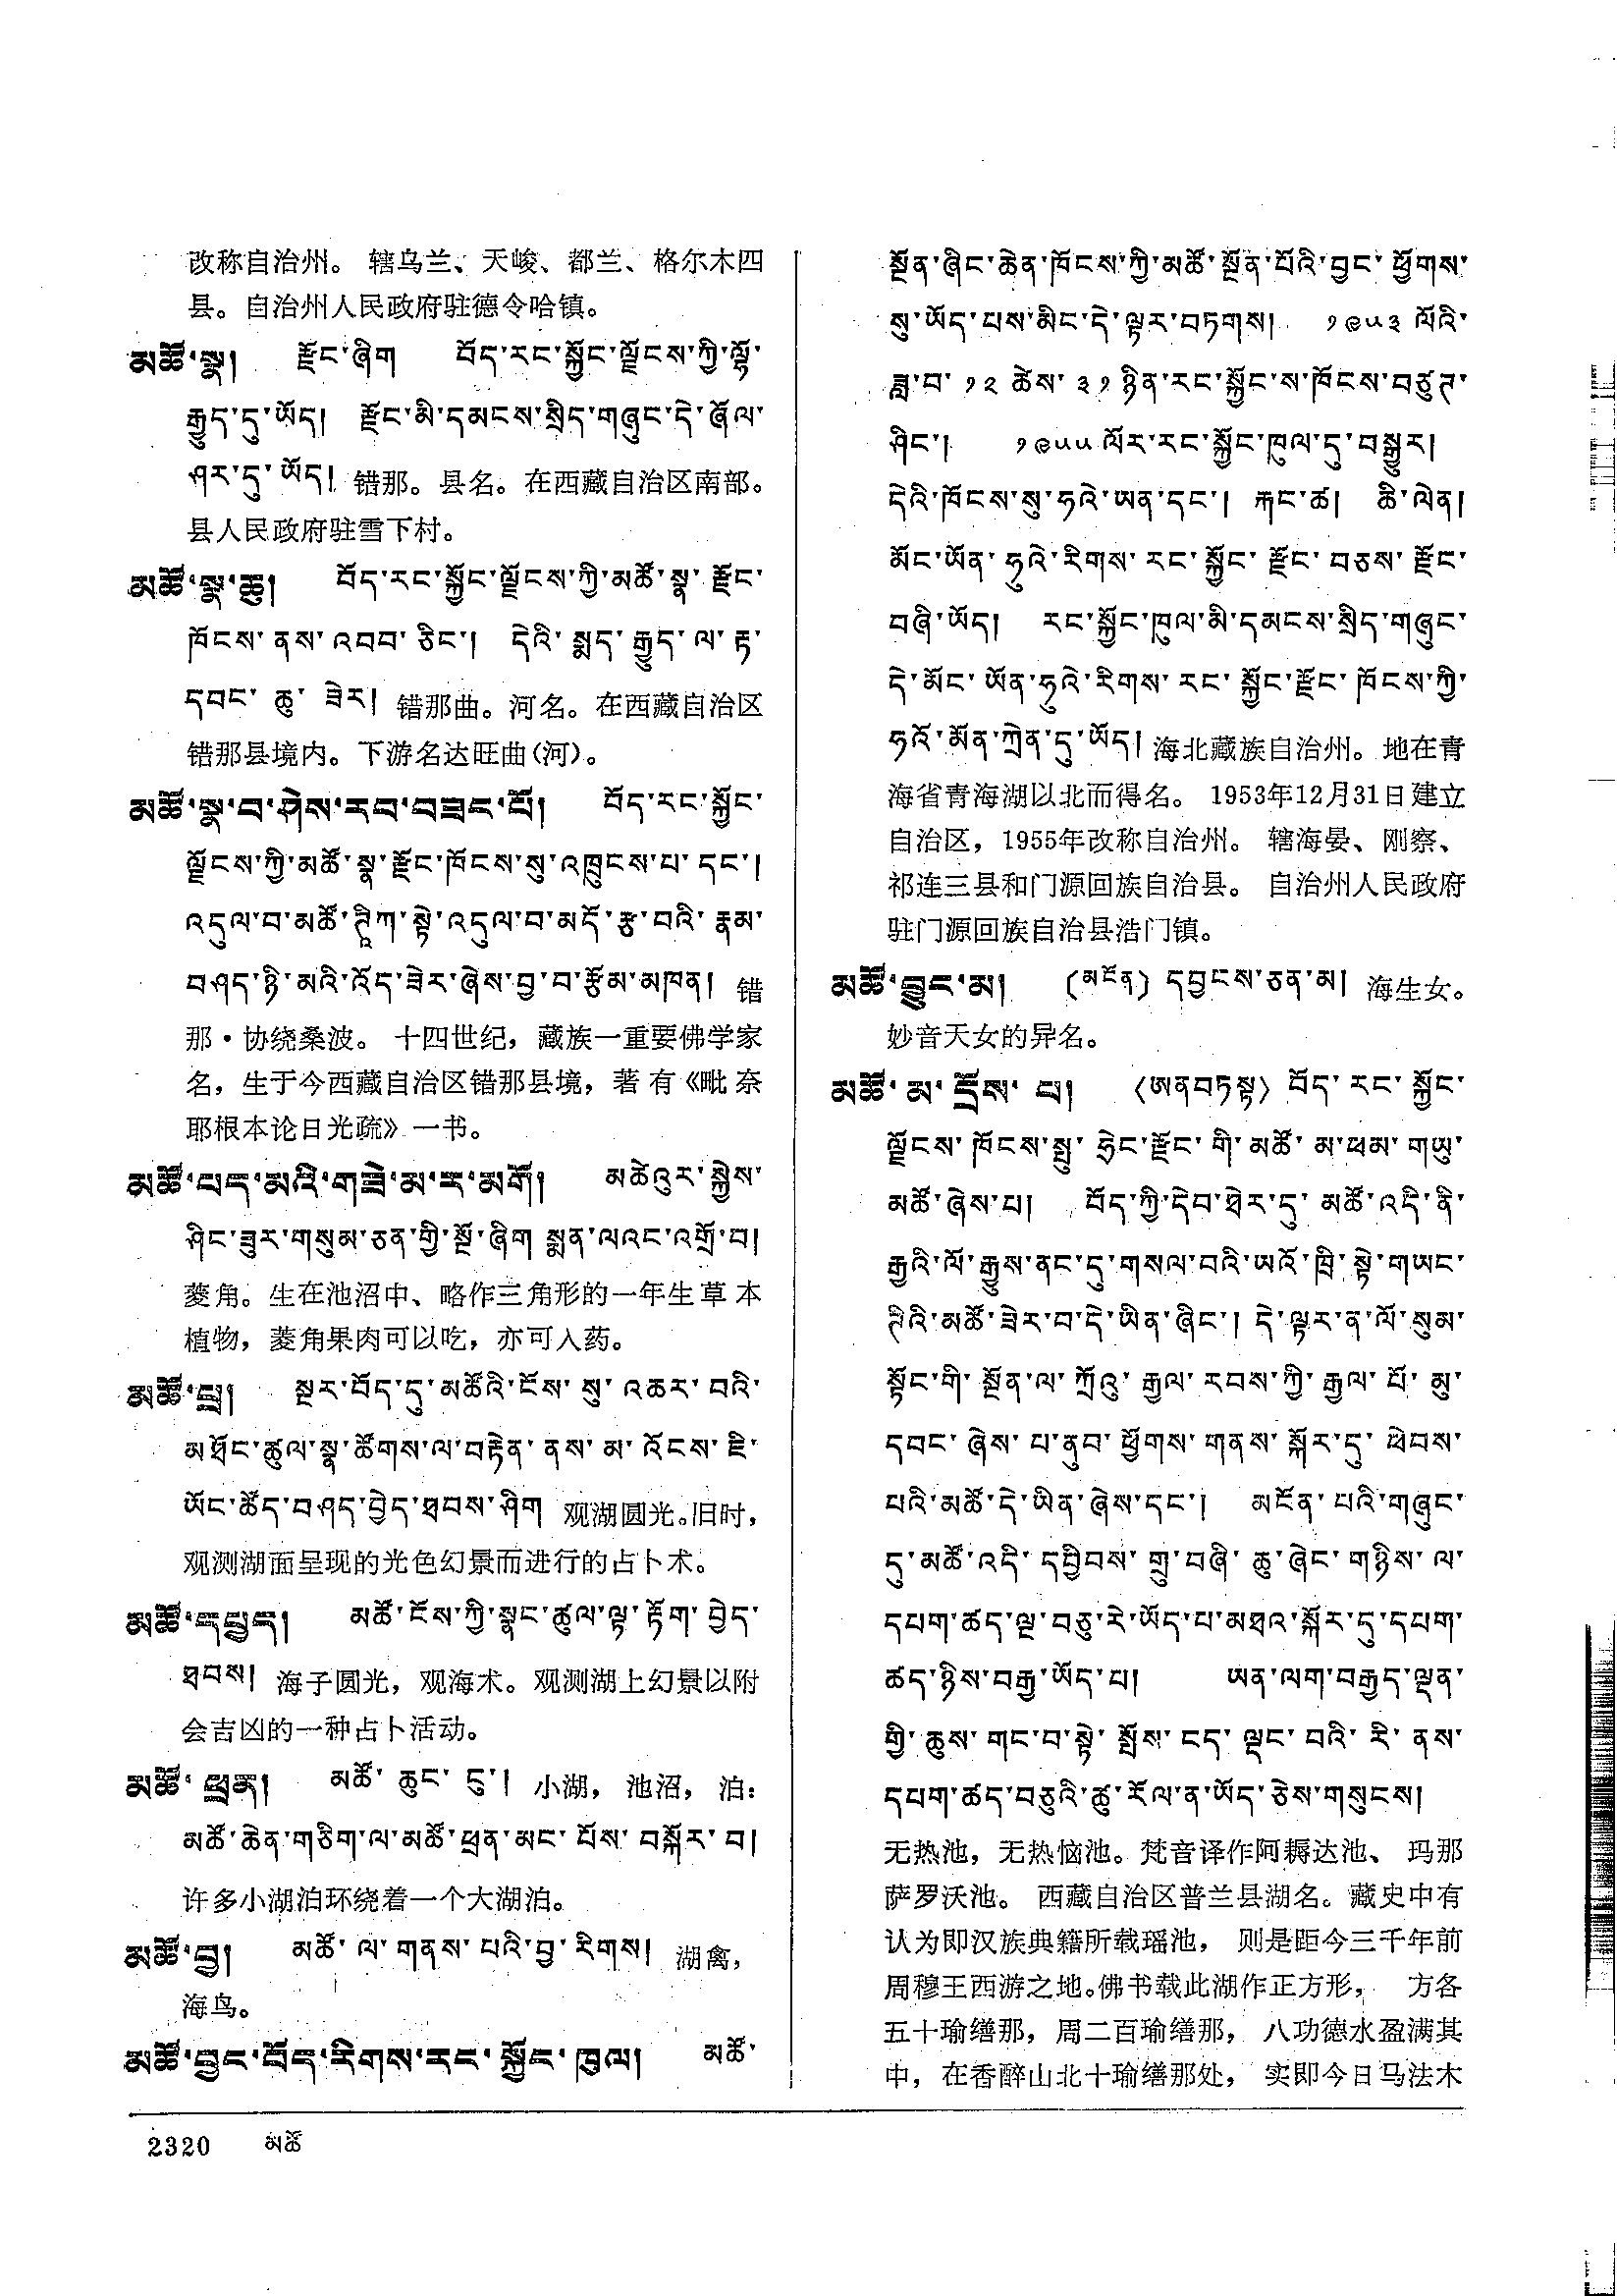 改称自治州。 辖乌兰、天峻、都兰、格尔木四
县。自治州人民政府驻德令哈镇。
མཚོ་སྣ། རྫོང་ཞིག བོད་རང་སྐྱོང་ལྗོངས་ཀྱི་ལྷོ་
རྒྱུད་དུ་ཡོད། རྫོང་མི་དམངས་སྲིད་གཞུང་དེ་ཞོལ་
ཤར་དུ་ཡོད། 错那。县名。在西藏自治区南部。
县人民政府驻雪下村。
མཚོ་སྣ་ཆུ། བོད་རང་སྐྱོང་ལྗོངས་ཀྱི་མཚོ་སྣ་རྫོང་
ཁོངས་ནས་འབབ་ཅིང་། དེའི་སྨད་རྒྱུད་ལ་རྟ་
དབང་ཆུ་ཟེར། 错那曲。河名。在西藏自治区
错那县境内。下游名达旺曲(河)。
མཚོ་སྣ་བ་ཤེས་རབ་བཟང་པོ། བོད་རང་སྐྱོང་
ལྗོངས་ཀྱི་མཚོ་སྣ་རྫོང་ཁོངས་སུ་འཁྲུངས་པ་དང་།
འདུལ་བ་མཚོ་ཊཱིཀ་སྟེ་འདུལ་བ་མདོ་རྩ་བའི་རྣམ་
བཤད་ཉི་མའི་འོད་ཟེར་ཞེས་བྱ་བ་རྩོམ་མཁན། 错
那·协绕桑波。 十四世纪，藏族一重要佛学家
名，生于今西藏自治区错那县境，著有《毗奈
耶根本论日光疏》一书。
མཚོ་པད་མའི་གཟེ་མ་ར་མགོ། མཚེའུར་སྐྱེས་
ཤིང་ཟུར་གསུམ་ཅན་གྱི་སྔོ་ཞིག སྨན་ལའང་འགྲོ་བ།
菱角。生在池沼中、略作三角形的一年生草本
植物，菱角果肉可以吃，亦可入药。
མཚོ་པྲ། སྔར་བོད་དུ་མཚོའི་ངོས་སུ་འཆར་བའི་
མཐོང་ཚུལ་སྣ་ཚོགས་ལ་བརྟེན་ནས་མ་འོངས་ཇི་
ཡོང་ཚོད་བཤད་བྱེད་ཐབས་ཤིག 观湖圆光。旧时，
观测湖面呈现的光色幻景而进行的占卜术。
མཚོ་དཔྱད། མཚོ་ངོས་ཀྱི་སྣང་ཚུལ་ལྟ་རྟོག་བྱེད་
ཐབས། 海子圆光，观海术。观测湖上幻景以附
会吉凶的一种占卜活动。
མཚོ་ཕྲན། མཚོ་ཆུང་ངུ་། 小湖，池沼，泊：
མཚོ་ཆེན་གཅིག་ལ་མཚོ་ཕྲན་མང་པོས་བསྐོར་བ།
许多小湖泊环绕着一个大湖泊。
མཚོ་བྱ། མཚོ་ལ་གནས་པའི་བྱ་རིགས། 湖禽，
海鸟。
མཚོ་བྱང་བོད་རིགས་རང་སྐྱོང་ཁུལ། མཚོ་
སྔོན་ཞིང་ཆེན་ཁོངས་ཀྱི་མཚོ་སྔོན་པོའི་བྱང་ཕྱོགས་
སུ་ཡོད་པས་མིང་དེ་ལྟར་བཏགས། ༡༩༥༣ ལོའི་
ཟླ་བ་ ༡༢ ཚེས་ ༣༡ ཉིན་རང་སྐྱོང་ས་ཁོངས་བཙུགས་
ཤིང་། ༡༩༥༥ ལོར་རང་སྐྱོང་ཁུལ་དུ་བསྒྱུར།
དེའི་ཁོངས་སུ་ཧའེ་ཨན་དང་། རྐང་ཚ། ཆི་ལེན།
མོང་ཡོན་ཧུའེ་རིགས་རང་སྐྱོང་རྫོང་བཅས་རྫོང་
བཞི་ཡོད། རང་སྐྱོང་ཁུལ་མི་དམངས་སྲིད་གཞུང་
དེ་མོང་ཡོན་ཧུའེ་རིགས་རང་སྐྱོང་རྫོང་ཁོངས་ཀྱི་
ཧའོ་མོན་ཀྲེན་དུ་ཡོད། 海北藏族自治州。地在青
海省青海湖以北而得名。 1953年12月31日建立
自治区，1955年改称自治州。 辖海晏、刚察、
祁连三县和门源回族自治县。 自治州人民政府
驻门源回族自治县浩门镇。
མཚོ་བྱུང་མ། (མངོན) དབྱངས་ཅན་མ། 海生女。
妙音天女的异名。
མཚོ་མ་དྲོས་པ། 〈ཨནབཏསྟ〉 བོད་རང་སྐྱོང་
ལྗོངས་ཁོངས་སྤུ་ཧྲེང་རྫོང་གི་མཚོ་མ་ཕམ་གཡུ་
མཚོ་ཞེས་པ། བོད་ཀྱི་དེབ་ཐེར་དུ་མཚོ་འདི་ནི་
རྒྱའི་ལོ་རྒྱུས་ནང་དུ་གསལ་བའི་ཡའོ་ཁྲི་སྟེ་གཡང་
ཊིའི་མཚོ་ཟེར་བ་དེ་ཡིན་ཞིང་། དེ་ལྟར་ན་ལོ་སུམ་
སྟོང་གི་སྔོན་ལ་ཀྲོའུ་རྒྱལ་རབས་ཀྱི་རྒྱལ་པོ་མུ་
དབང་ཞེས་པ་ནུབ་ཕྱོགས་གནས་སྐོར་དུ་ཕེབས་
པའི་མཚོ་དེ་ཡིན་ཞེས་དང་། མངོན་པའི་གཞུང་
དུ་མཚོ་འདི་དབྱིབས་གྲུ་བཞི་ཆུ་ཞེང་གཉིས་ལ་
དཔག་ཚད་ལྔ་བཅུ་རེ་ཡོད་པ་མཐའ་སྐོར་དུ་དཔག་
ཚད་ཉིས་བརྒྱ་ཡོད་པ། ཡན་ལག་བརྒྱད་ལྡན་
གྱི་ཆུས་གང་བ་སྟེ་སྤོས་ངད་ལྡང་བའི་རི་ནས་
དཔག་ཚད་བཅུའི་ཚུ་རོལ་ན་ཡོད་ཅེས་གསུངས།
无热池，无热恼池。梵音译作阿耨达池、 玛那
萨罗沃池。 西藏自治区普兰县湖名。藏史中有
认为即汉族典籍所载瑶池， 则是距今三千年前
周穆王西游之地。佛书载此湖作正方形， 方各
五十瑜缮那，周二百瑜缮那， 八功德水盈满其
中，在香醉山北十瑜缮那处， 实即今日马法木
2320 མཚོ